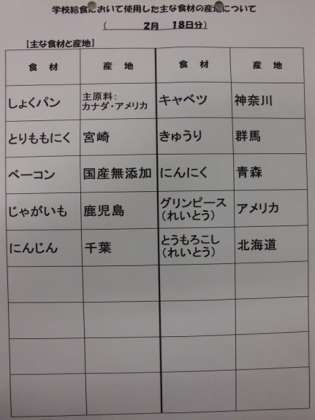 学校給食において使用した主な食材の産地について
( 2月 18日分)
[主な食材と産地]
食材 産地 食材 産地
しょくパン 主原料: カナダ・アメリカ キャベツ 神奈川
とりももにく 宮崎 きゅうり 群馬
ベーコン 国産無添加 にんにく 青森
じゃがいも 鹿児島 グリンピース (れいとう) アメリカ
にんじん 千葉 とうもろこし (れいとう) 北海道